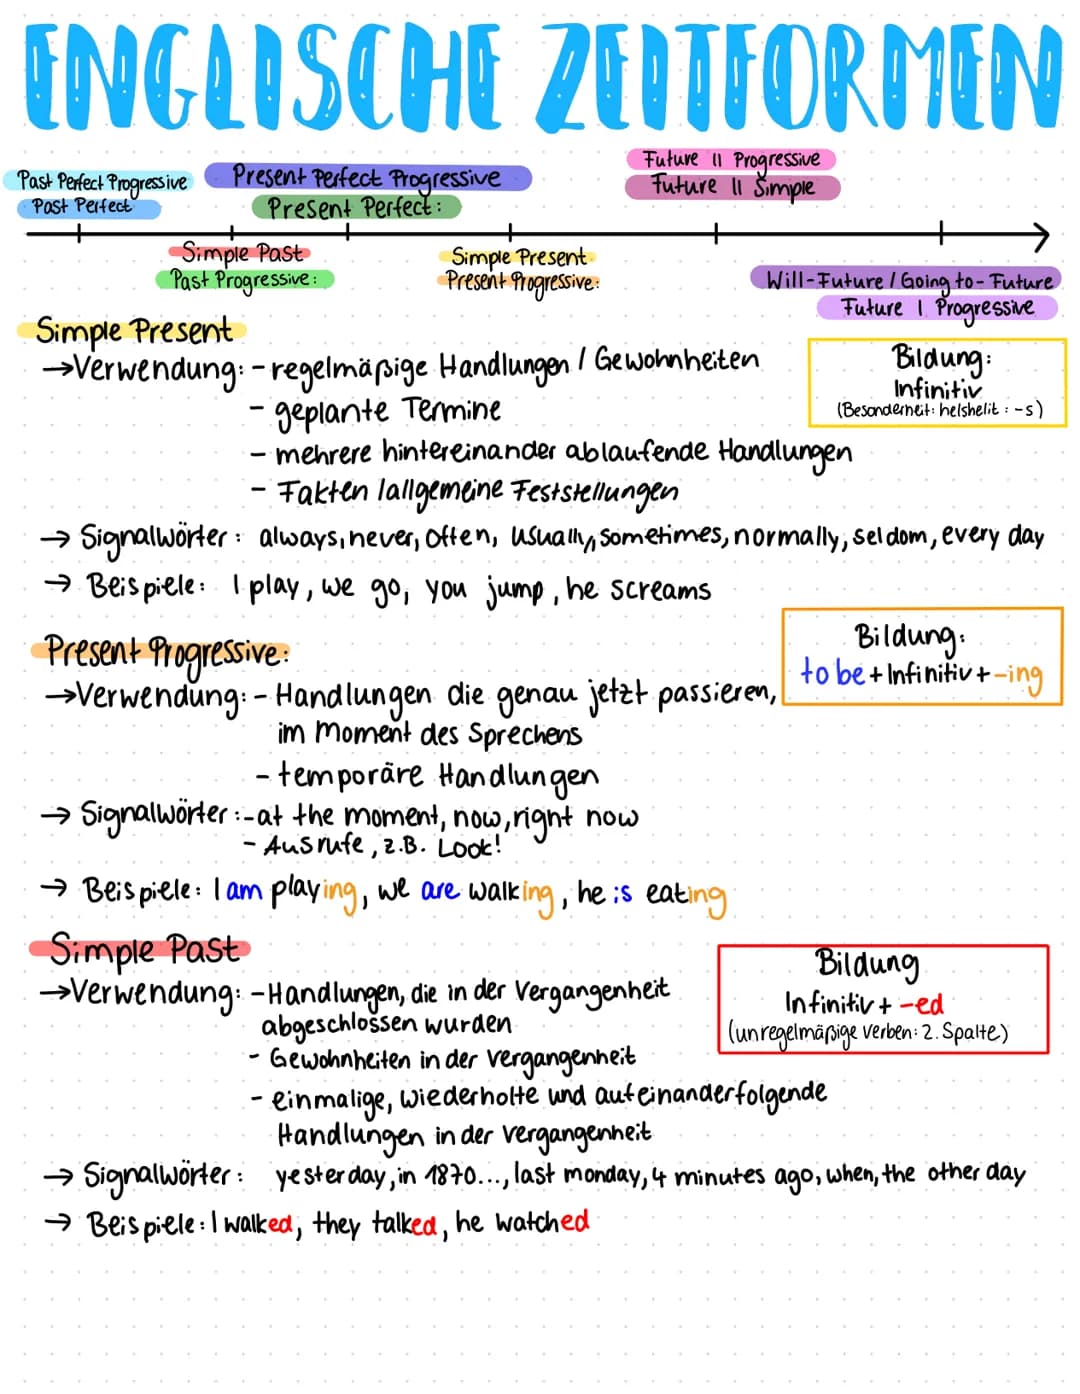 ENGLISCHE ZEITFORMEN
Future II Progressive
Future II Simple
Past Perfect Progressive
Past Perfect
Present Perfect Progressive
Present Perfect:
Simple Past
Past Progressive:
Simple Present
Present Progressive:
Will-Future / Going to-Future
Future I Progressive
Simple Present
→Verwendung: - regelmäßige Handlungen / Gewohnheiten
- geplante Termine
- mehrere hintereinander ablaufende Handlungen
- Fakten /allgemeine Feststellungen
Bildung:
Infinitiv
(Besonderheit: he/she/it : -s)
→ Signalwörter: always, never, often, usually, sometimes, normally, seldom, every day
→ Beispiele: I play, we go, you jump, he screams
Present Progressive:
→Verwendung: - Handlungen die genau jetzt passieren,
im Moment des Sprechens
- temporäre Handlungen
Bildung:
to be + Infinitiv + -ing
→ Signalwörter: - at the moment, now, right now
- Ausrufe, z.B. Look!
→ Beispiele: I am playing, we are walking, he is eating
Simple Past
→Verwendung: - Handlungen, die in der Vergangenheit
abgeschlossen wurden
- Gewohnheiten in der Vergangenheit
- einmalige, wiederholte und aufeinanderfolgende
Handlungen in der Vergangenheit
Bildung
Infinitiv + -ed
(unregelmäßige Verben: 2. Spalte)
→ Signalwörter: yesterday, in 1870..., last monday, 4 minutes ago, when, the other day
→ Beispiele: I walked, they talked, he watched